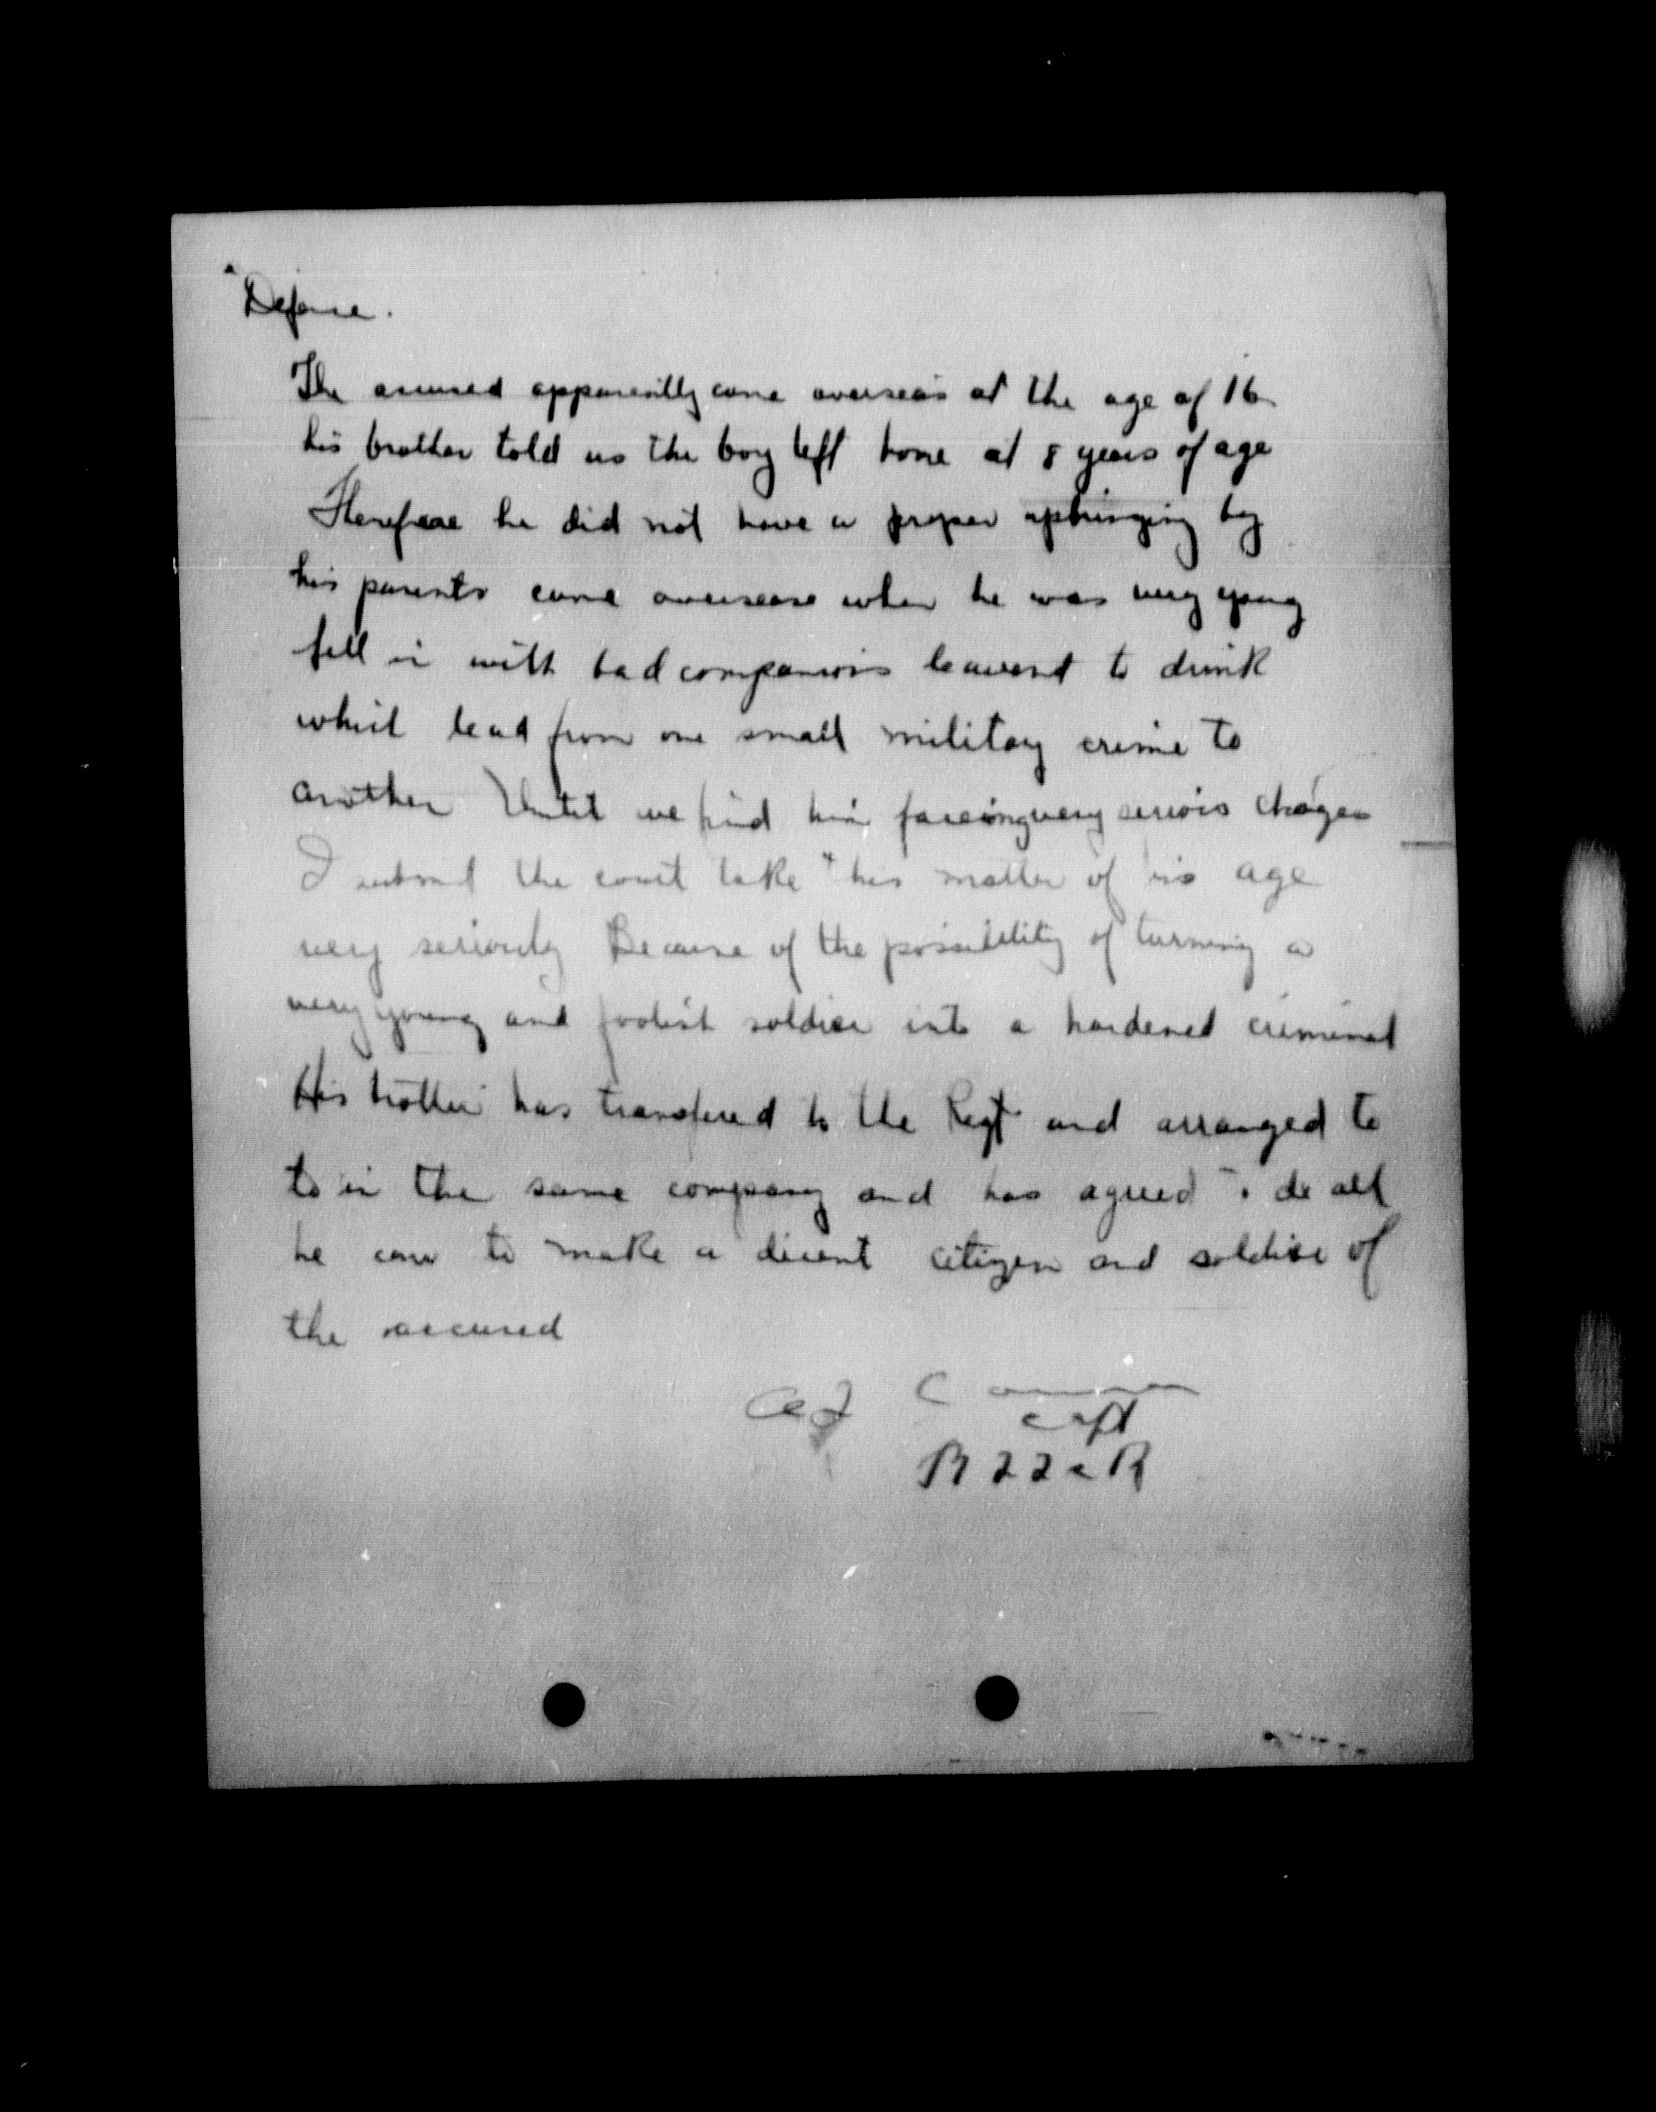 Defense.
The accused apparently came overseas at the age of 16
his brother told us the boy left home at 8 years of age
Therefore he did not have a proper upbringing by
his parents came overseas when he was very young
fell in with bad companions learned to drink
which lead from one small military crime to
another Until we find him faceing very serious charges
I submit the court take this matter of his age
very seriously Because of the possibility of turning a
very young and foolish soldier into a hardened criminal
His brother has transfered to the Regt and arranged to
to in the same company and has agreed to do all
he can to make a decent citizen and soldier of
the accused
capt
R 22 e R